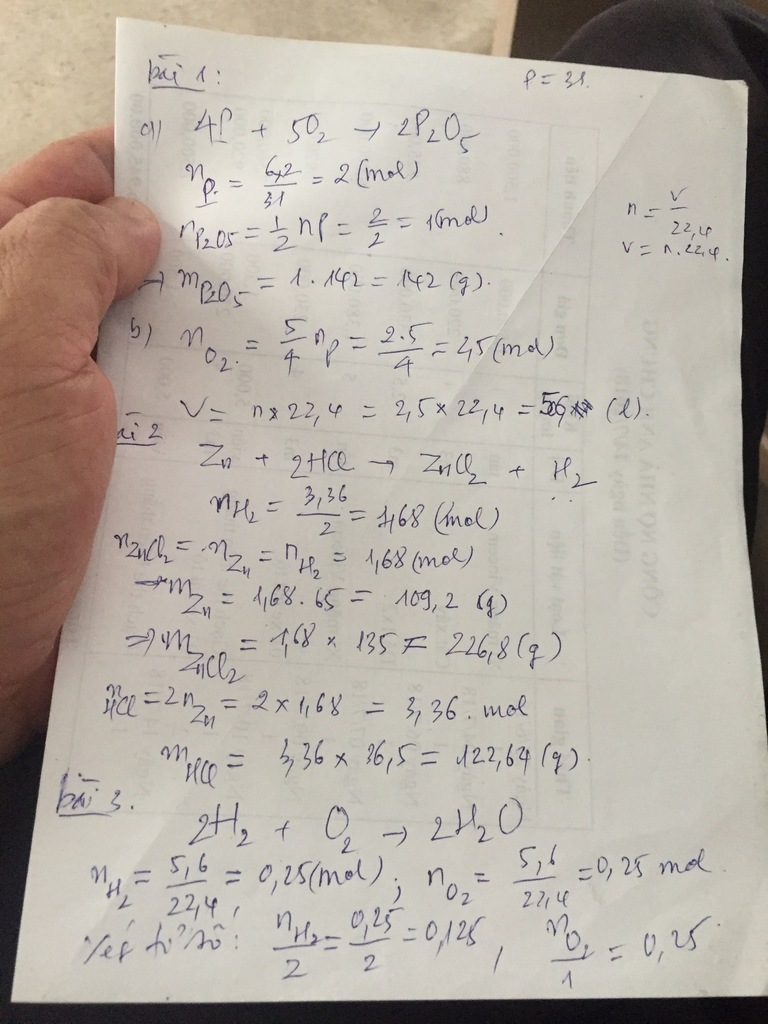 bài 1:
P = 31.
a)) 4P + 5O₂ → 2P₂O₅
nP = 62/31 = 2 (mol)
nP2O5 = 1/2 nP = 2/2 = 1 (mol).
n = V/22,4
V = n.22,4.
→ mP2O5 = 1.142 = 142 (g).
b) nO₂ = 5/4 nP = 2.5/4 = 2,5 (mol)
V = n × 22,4 = 2,5 × 22,4 = 56 (l).
bài 2
Zn + 2HCl → ZnCl₂ + H₂
nH₂ = 3,36/2 = 1,68 (mol)
nZnCl₂ = nZn = nH₂ = 1,68 (mol)
→ mZn = 1,68.65 = 109,2 (g)
=> mZnCl₂ = 1,68 × 135 = 226,8 (g)
nHCl = 2nZn = 2 × 1,68 = 3,36. mol
mHCl = 3,36 × 36,5 = 122,64 (g).
bài 3.
2H₂ + O₂ → 2H₂O
nH₂ = 5,6/22,4 = 0,25 (mol); nO₂ = 5,6/22,4 = 0,25 mol.
Xét tỉ số: nH₂/2 = 0,25/2 = 0,125, nO₂/1 = 0,25